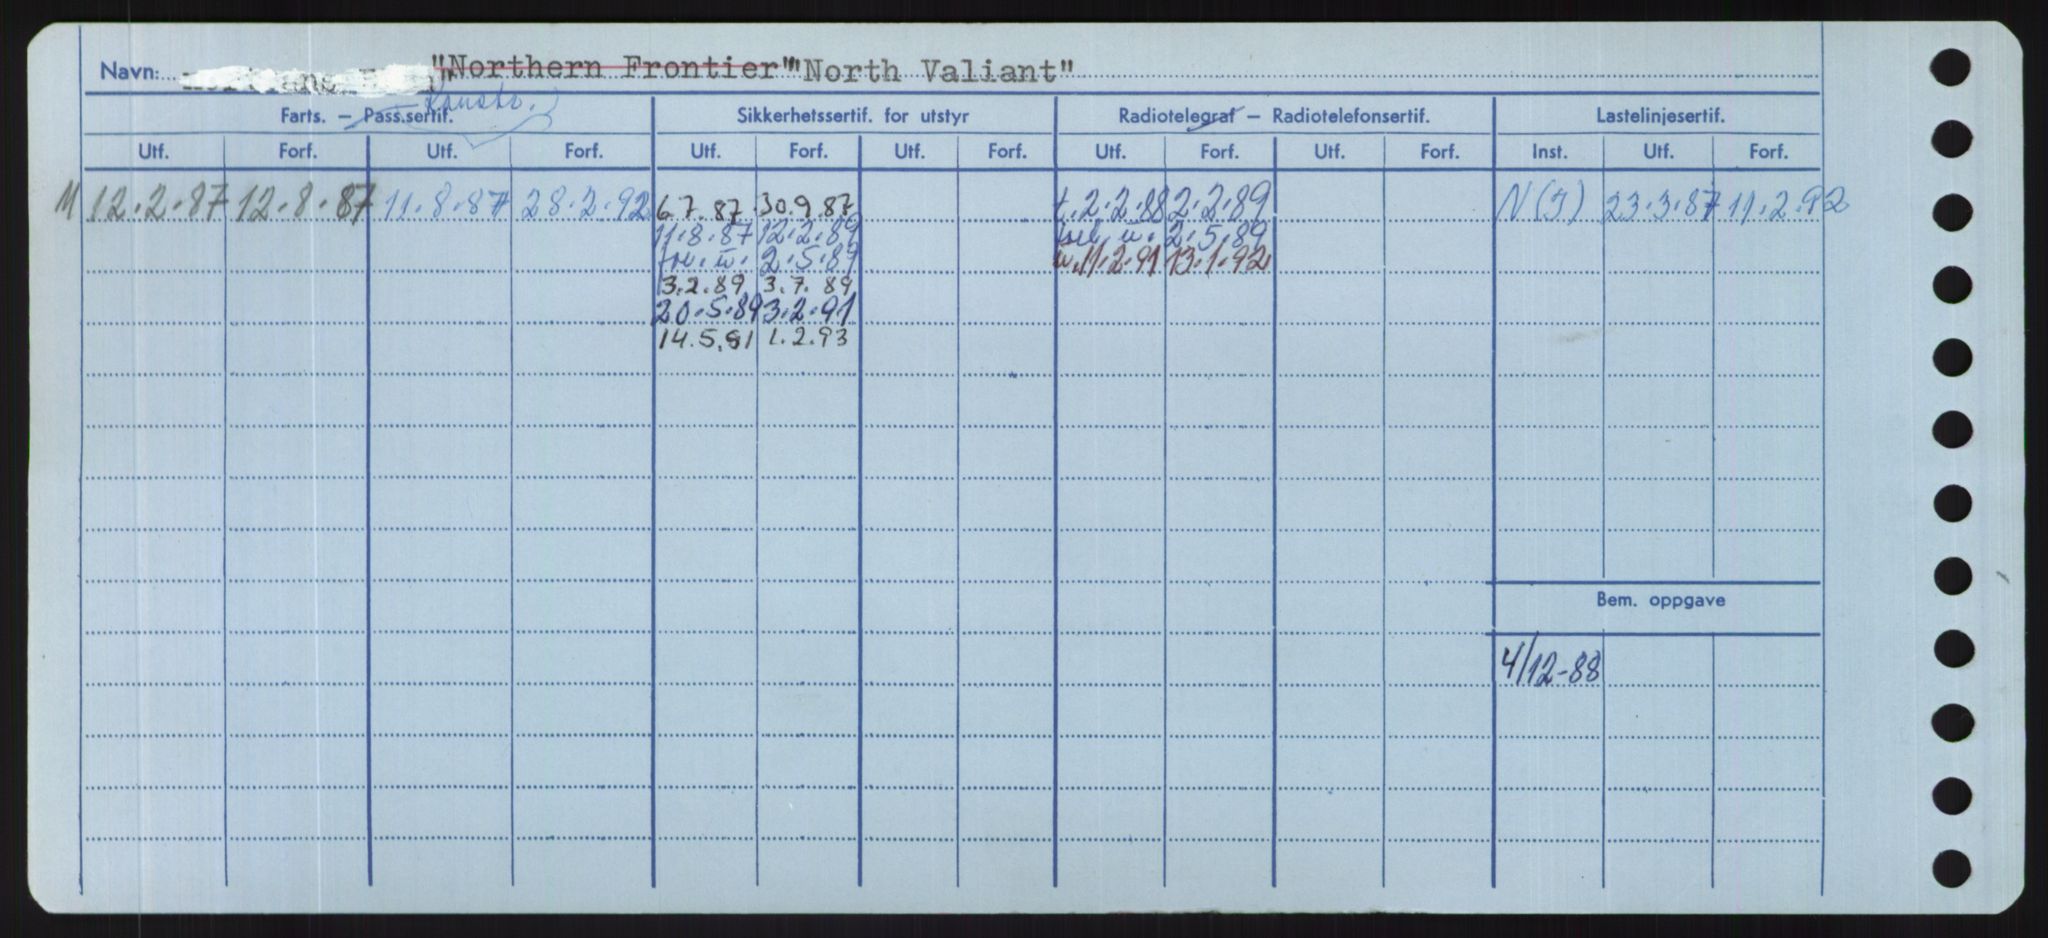 Navn: "Northern Frontier" "North Valiant"
Konstr.
Farts. — Pass.sertif. Sikkerhetssertif. for utstyr Radiotelegraf — Radiotelefonsertif. Lastelinjesertif.
Utf. Forf. Utf. Forf. Utf. Forf. Utf. Forf. Utf. Forf. Utf. Forf. Inst. Utf. Forf.
M 12.2.87 12.8.87 11.8.87 28.2.92 6.7.87 30.9.87 t.2.2.88 2.2.89 N(I) 23.3.87 11.2.92
11.8.87 12.2.89 tel. u. 2.5.89
u. 2.5.89 u.11.2.91 13.1.92
3.2.89 3.7.89
20.5.89 3.2.91
14.5.91 1.2.93
Bem. oppgave
4/12-88